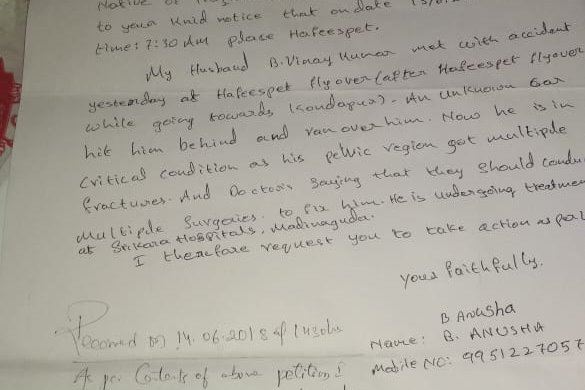 Native of
to your Knid notice that on date
time: 7:30 AM place Hafeespet.
My Husband B. Vinay Kumar met with accident
yesterday at Hafeespet flyover (after Hafeespet flyover
while going towards Kondapur). An unknown Car
hit him behind and ran over him. Now he is in
Critical condition as his pelvic region got multiple
fractures. And Doctors Saying that they Should Condu
Multiple Surgeries. to fix him. He is undergoing treatmen
at Srikara Hospitals, Madinaguda.
I therefore request you to take action as per
yours faithfully.
B Anusha
Name: B. ANUSHA
Mobile No: 9951227057
Received on 14.06.2018 at
As per Contents of above petition